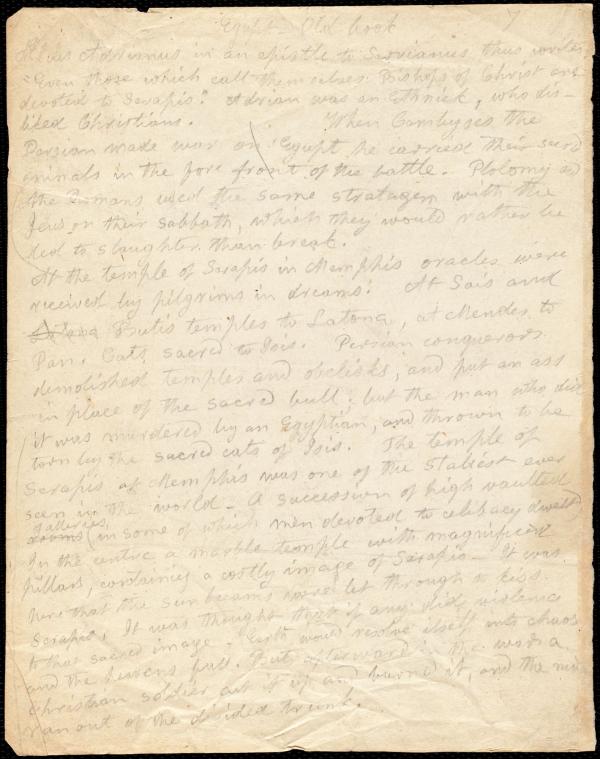 Egypt - Old book
Ælius Adrianus in an epistle to Servianus thus writes
"Even those which call themselves Bishops of Christ are
devoted to Serapis." Adrian was an Ethnick, who dis-
liked Christians. When Cambyses the
Persian made war on Egypt he carried their sacred
animals in the fore front of the battle. Ptolomy and
the Romans used the same stratagem with the
Jews on their Sabbath, which they would rather be
led to slaughter than break.
At the temple of Serapis in Memphis oracles were
received by pilgrims in dreams. At Sais and
Butis temples to Latona, at Mendes to
Pan. Cats sacred to Isis. Persian conquerors
demolished temples and obelisks, and put an ass
in place of the sacred bull; but the man who did
it was murdered by an Egyptian, and thrown to be
torn by the sacred cats of Isis. The temple of
Serapis at Memphis was one of the statliest ever
seen in the world - A succession of high vaulted
galleries
rooms (in some of which men devoted to celibacy dwelt)
In the centre a marble temple with magnificent
pillars, containing a costly image of Serapis - It was
here that the sun beams were let through to kiss
Serapis. It was thought that if any did violence
to that sacred image - Earth would resolve itself into chaos
and the heavens fall. But afterward in the wars a
christian soldier cut it up and burned it, and the mice
ran out of the divided trunk.